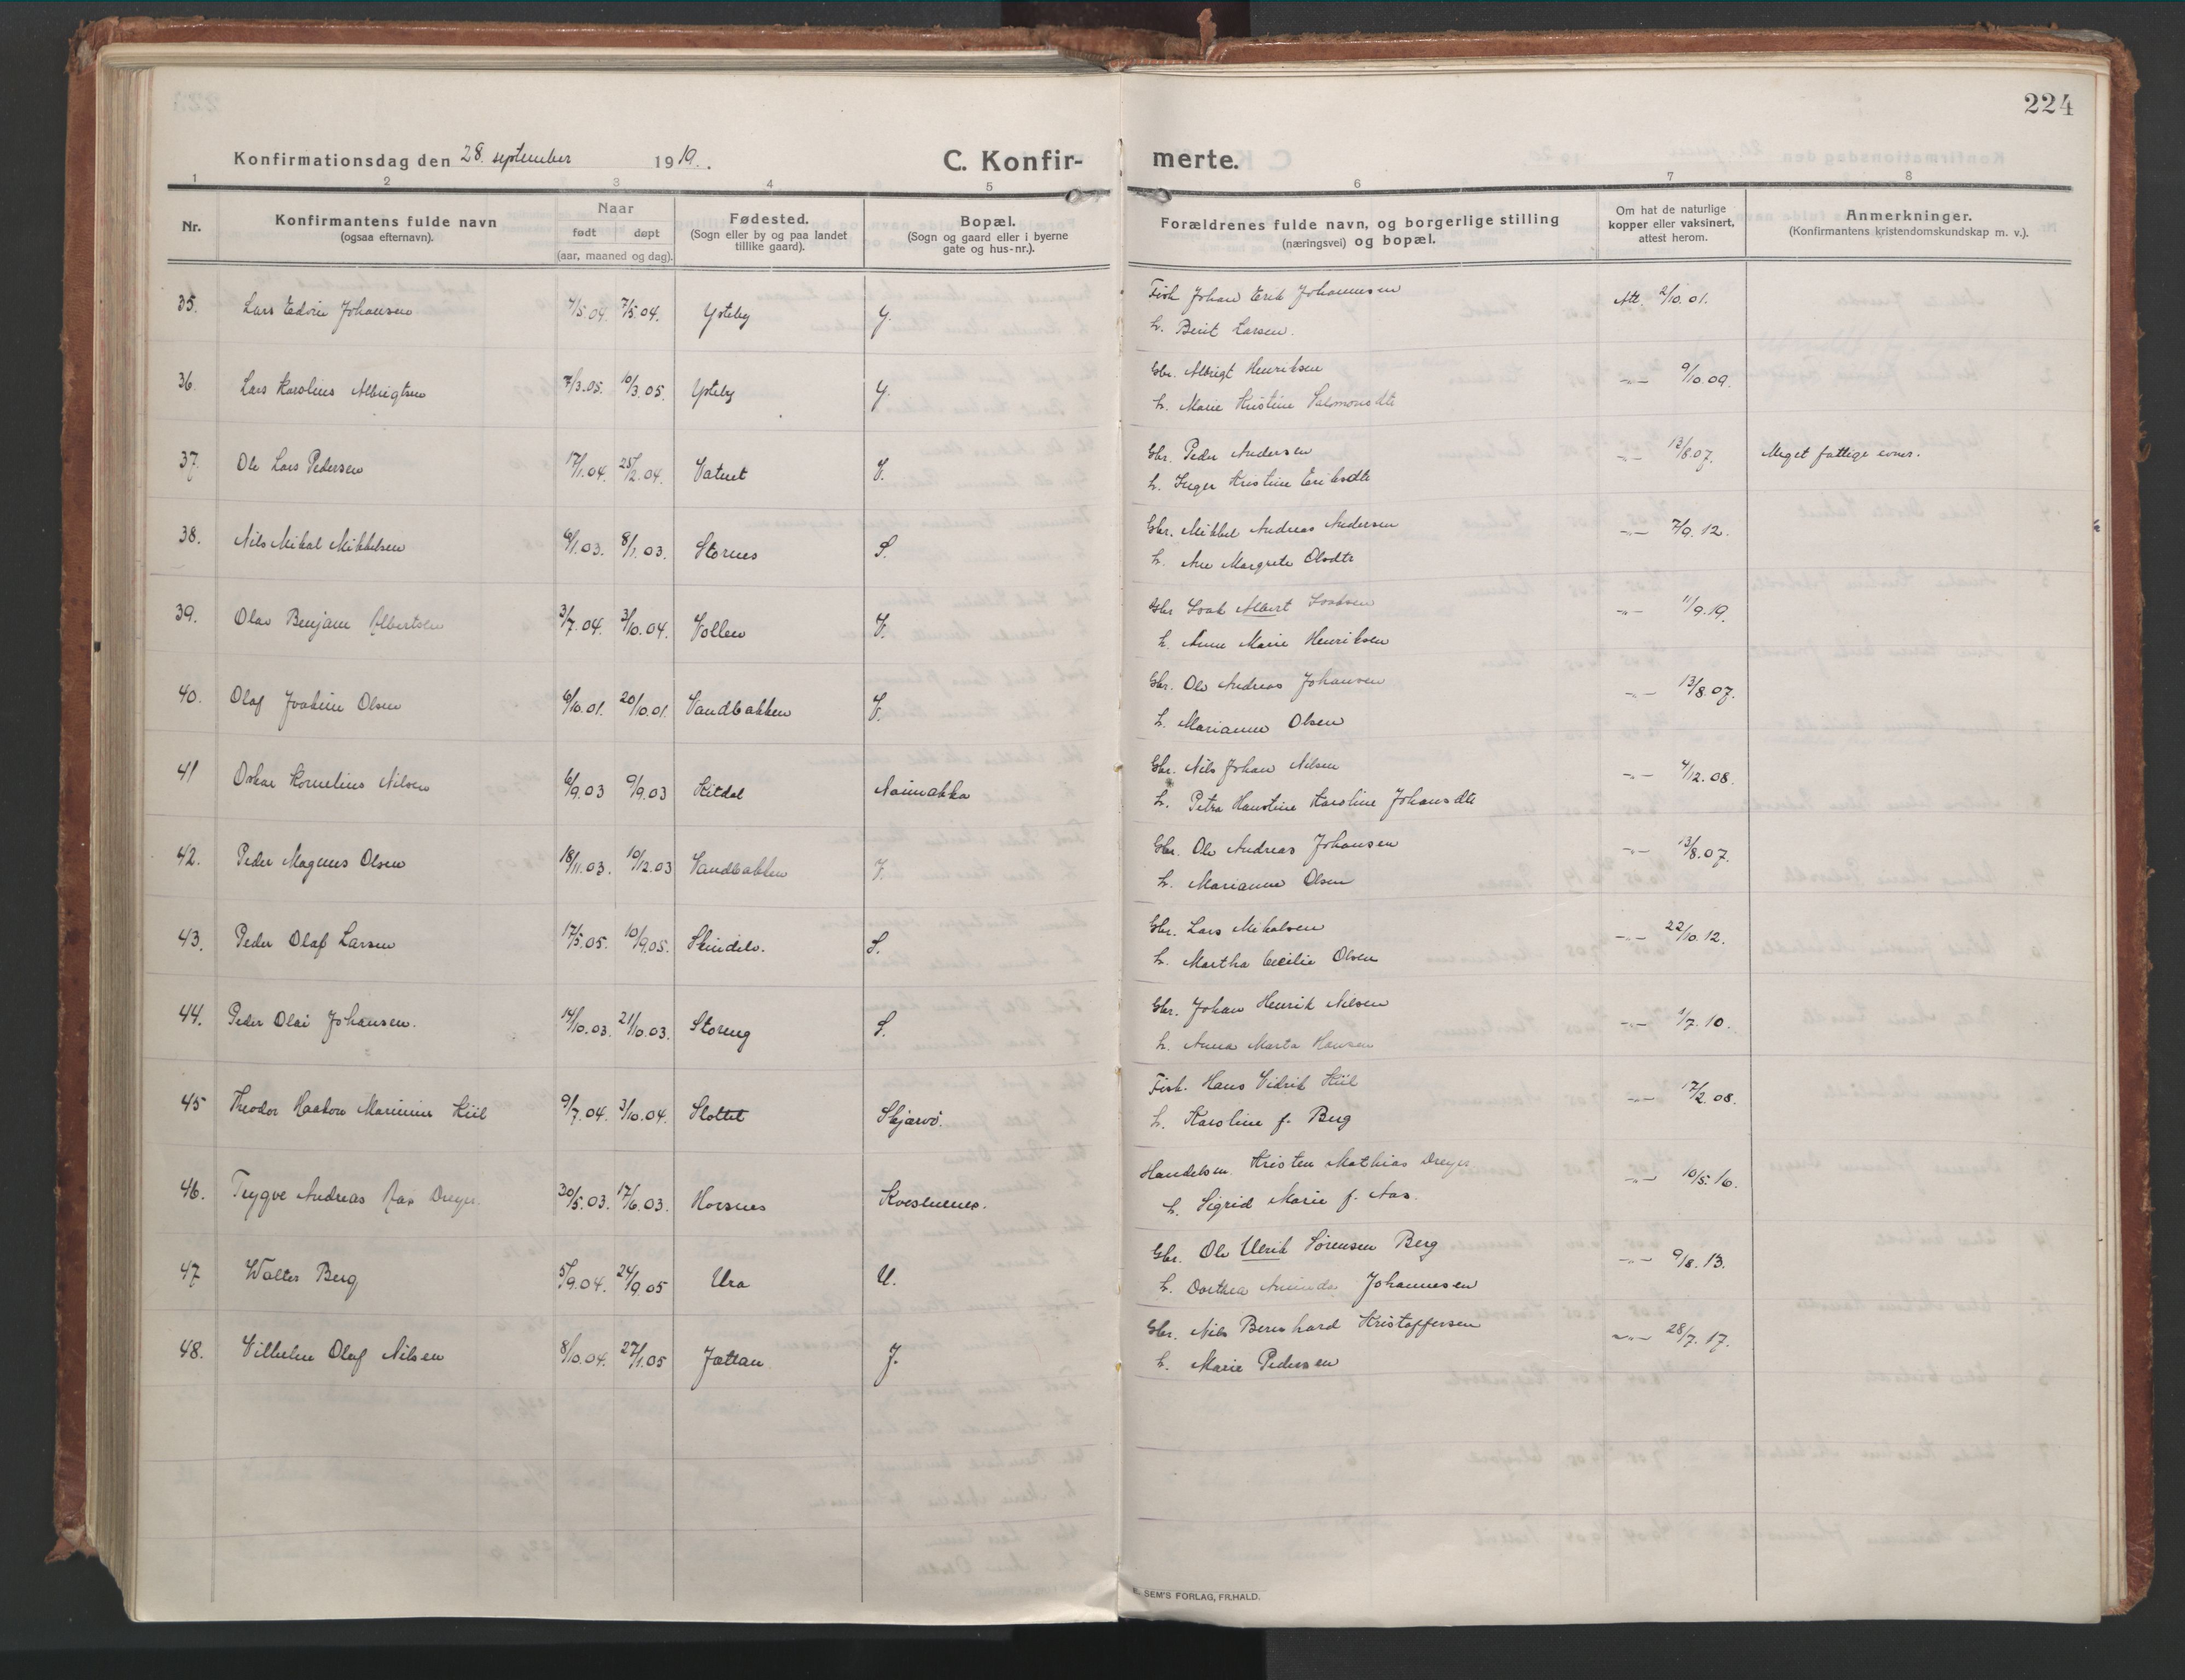 224
Konfirmationsdag den 28. september 1919.
C. Konfirmerte.
1 2 3 4 5 6 7 8
Nr.
Konfirmantens fulde navn
(ogsaa efternavn).
Naar
født døpt
(aar, maaned og dag).
Fødested.
(Sogn eller by og paa landet
tillike gaard).
Bopæl.
(Sogn og gaard eller i byerne
gate og hus-nr.).
Forældrenes fulde navn, og borgerlige stilling
(næringsvei) og bopæl.
Om hat de naturlige
kopper eller vaksinert,
attest herom.
Anmerkninger.
(Konfirmantens kristendomskundskap m. v.).
35. Lars Edvin Johansen 7/5.04. 7/5.04. Ysteby Y. Fisk Johan Erik Johannesen Att. 2/10.01.
h. Berit Larsen.
36. Lars Karolius Albrigtsen 7/3.05. 10/3.05. Ysteby Y. Gbr. Albrigt Henriksen -"- 9/10.09.
h. Marie Kristine Salomonsdtr
37. Ole Lars Pedersen 17/1.04. 28/2.04. Vatnet V. Gbr. Peder Andersen -"- 13/8.07. Meget fattige evner.
h. Inger Kristine Eriksdtr
38. Nils Mikal Mikkelsen 6/1.03. 8/1.03. Stornes S. Gbr. Mikkel Andreas Andersen -"- 7/9.12.
h. Ane Margrete Olsdtr
39. Olav Benjam Albertsen 3/7.04. 3/10.04. Vollen V. Gbr Isak Albert Isaksen -"- 11/9.19.
h. Anne Marie Henriksen
40. Olaf Joakim Olsen 6/10.01. 20/10.01. Vandbakken V. Gbr. Ole Andreas Johansen -"- 13/8.07.
h. Marianne Olsen
41 Oskar Kornelius Nilsen 6/9.03 9/9.03 Kitdal Naimakka Gbr. Nils Johan Nilsen -"- 4/12.08.
h. Petra Hanstine Karoline Johansdtr
42. Peder Magnus Olsen 18/11.03. 10/12.03 Vandbakken V. Gbr. Ole Andreas Johansen -"- 13/8.07.
h. Marianne Olsen
43. Peder Olaf Larsen 17/5.05. 10/9.05. Skindelv. S. Gbr. Lars Mikalsen -"- 22/10.12.
h. Martha Cecilie Olsen
44. Peder Olai Johansen. 14/10.03. 21/10.03. Storeng S. Gbr. Johan Henrik Nilsen -"- 1/7.10.
h. Anna Marta Hansen
45 Theodor Haakon Marinius Kiil 9/7.04. 3/10.04. Slottet Skjærvö. Fisk. Hans Vidrik Kiil -"- 17/2.08.
h. Karoline f. Berg
46. Trygve Andreas Aas Dreyer. 30/5.03. 17/6.03. Horsnes Kvesmenes. Handelsm. Kristen Mathias Dreyer -"- 10/5.16.
h. Sigrid Marie f. Aas.
47 Walter Berg 5/9.04. 24/9.05 Ura U. Gbr. Ole Ulrik Sörensen Berg -"- 9/8.13.
h. Dorthea Aminda Johannesen
48. Vilhelm Olaf Nilsen 8/10.04. 27/1.05 Jættan J. Gbr. Nils Bernhard Kristoffersen -"- 28/7.17.
h. Marie Pedersen
SEM'S FORLAG, FR.HALD.